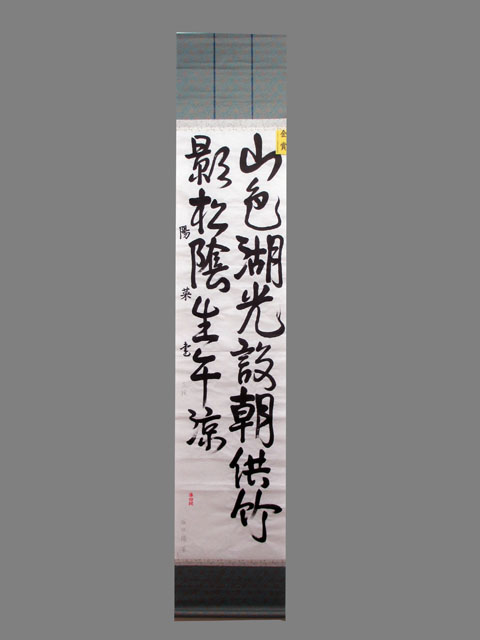 金賞
山色湖光設朝供竹
影松陰生午涼
陽菜書